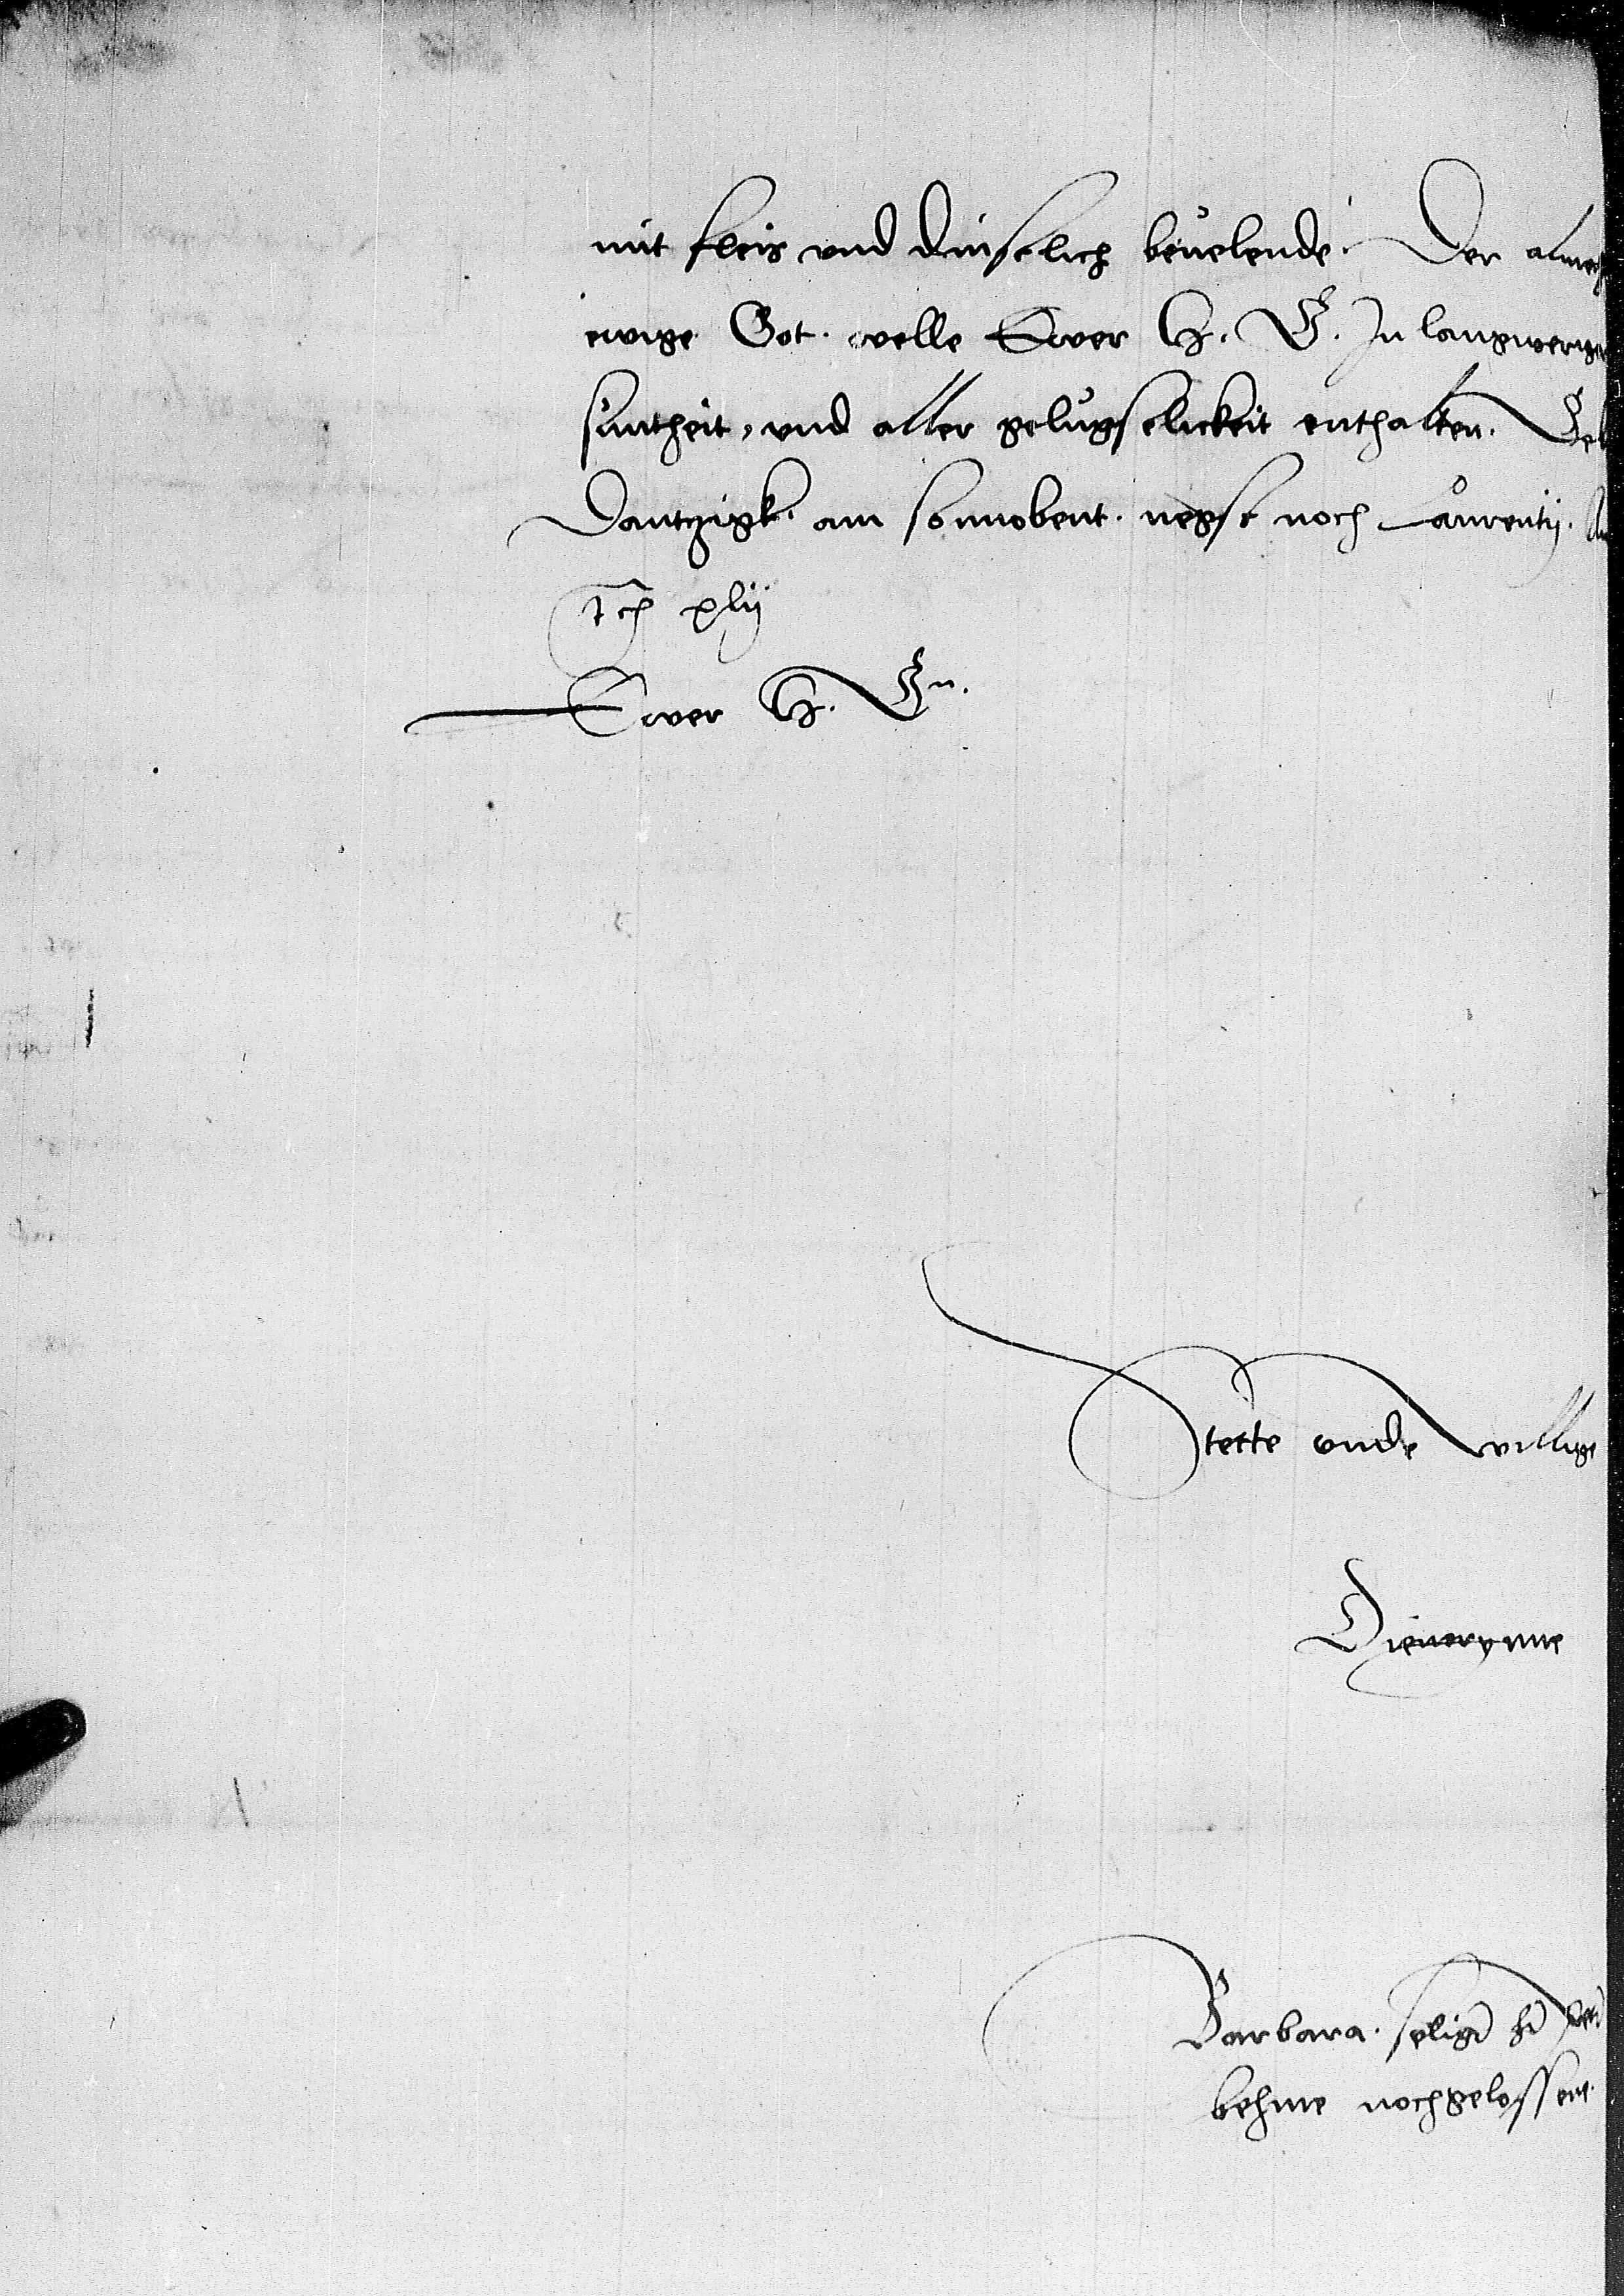 mit fleis vnd dinstlich beuelende. Der almech
ewige Got. welle Ewer H. G. In langweriger
suntheit, vnd aller gelugselickeit enthalten. Geb
Dantzigk. am sonnobent. negst noch Laurentij. An
xlij
Ewer H. Gn.
Stette vnde willige
Dienerynne
Barbara. selig hern
behme nochgelossene